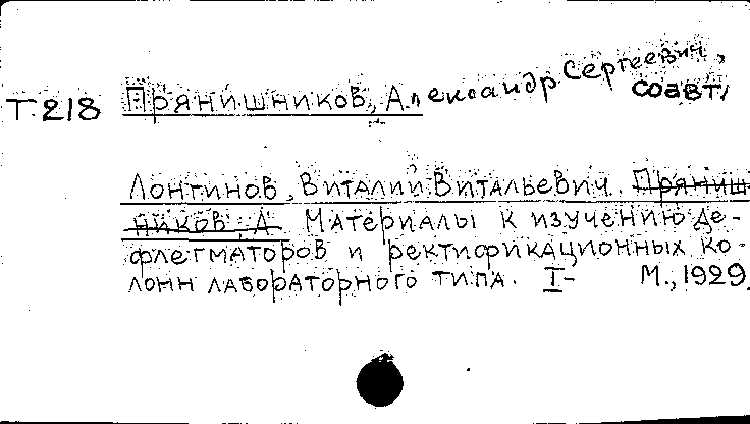 Т218 Прянишников, Александр Сергеевич,
соавт.
Лонгинов, Виталий Витальевич. Пряниш-
ников, А. Материалы к изучению де-
флегматоров и ректификационных ко-
лонн лабораторного типа. I- М., 1929.